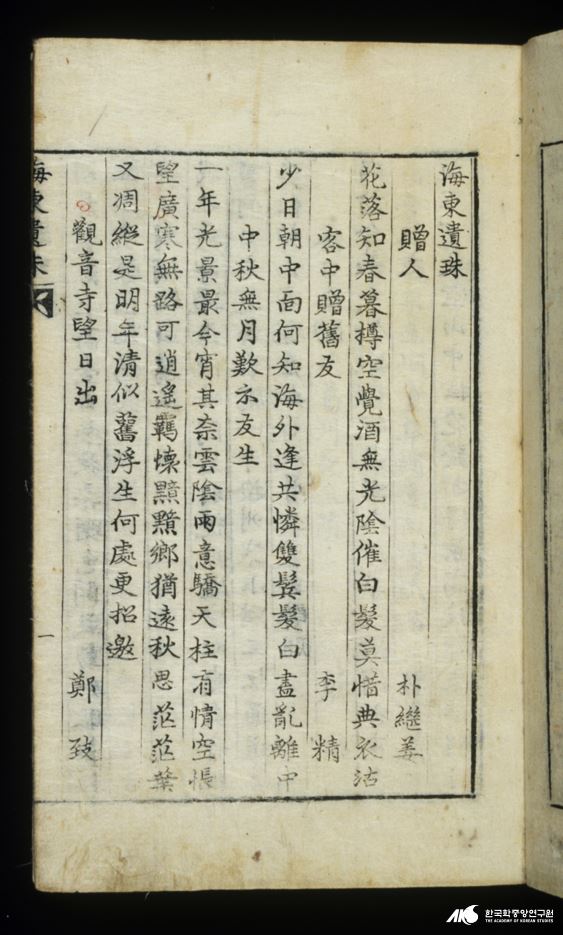 海東遺珠
贈人 朴繼姜
花落知春暮樽空覺酒無光陰催白髮莫惜典衣沽
客中贈舊友 李精
少日朝中面何知海外逢共憐雙鬂髮白盡亂離中
中秋無月歎示友生
一年光景最今宵其奈雲陰雨意驕天柱有情空悵
望廣寒無路可逍遙羈懷黯黯鄉猶遠秋思茫茫葉
又凋縱是明年清似舊浮生何處更招邀
觀音寺望日出 鄭致
海東遺珠
一
한국학중앙연구원
THE ACADEMY OF KOREAN STUDIES
AKS